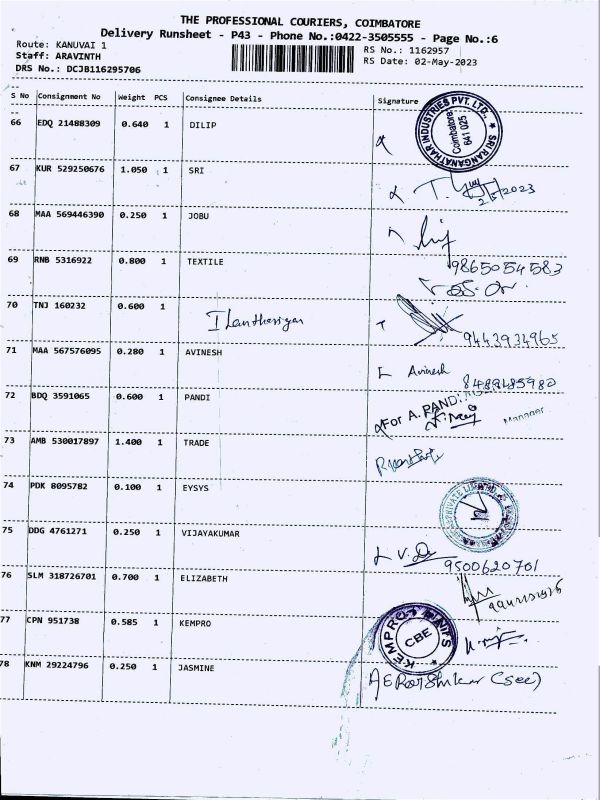 THE PROFESSIONAL COURIERS, COIMBATORE
Delivery Runsheet - P43 - Phone No.:0422-3505555 - Page No.:6
Route: KANUVAI 1
RS No.: 1162957
Staff: ARAVINTH
RS Date: 02-May-2023
DRS No.: DCJB116295706
S No Consignment No Weight PCS Consignee Details Signature
66 EDQ 21488309 0.640 1 DILIP
SRI RANGANATHAR INDUSTRIES PVT. LTD.,
Coimbatore:
641 025
67 KUR 529250676 1.050 1 SRI
2/5/2023
68 MAA 569446390 0.250 1 JOBU
69 RNB 5316922 0.800 1 TEXTILE
9865054583
70 TNJ 160232 0.600 1
9443934965
71 MAA 567576095 0.280 1 AVINESH
Avinesh
8489485980
72 BDQ 3591065 0.600 1 PANDI
For A. PANDI
Manager
73 AMB 530017897 1.400 1 TRADE
74 PDK 8095782 0.100 1 EYSYS
PRIVATE LIMITED
75 DDG 4761271 0.250 1 VIJAYAKUMAR
9500620701
76 SLM 318726701 0.700 1 ELIZABETH
77 CPN 951738 0.585 1 KEMPRO
CBE
78 KNM 29224796 0.250 1 JASMINE